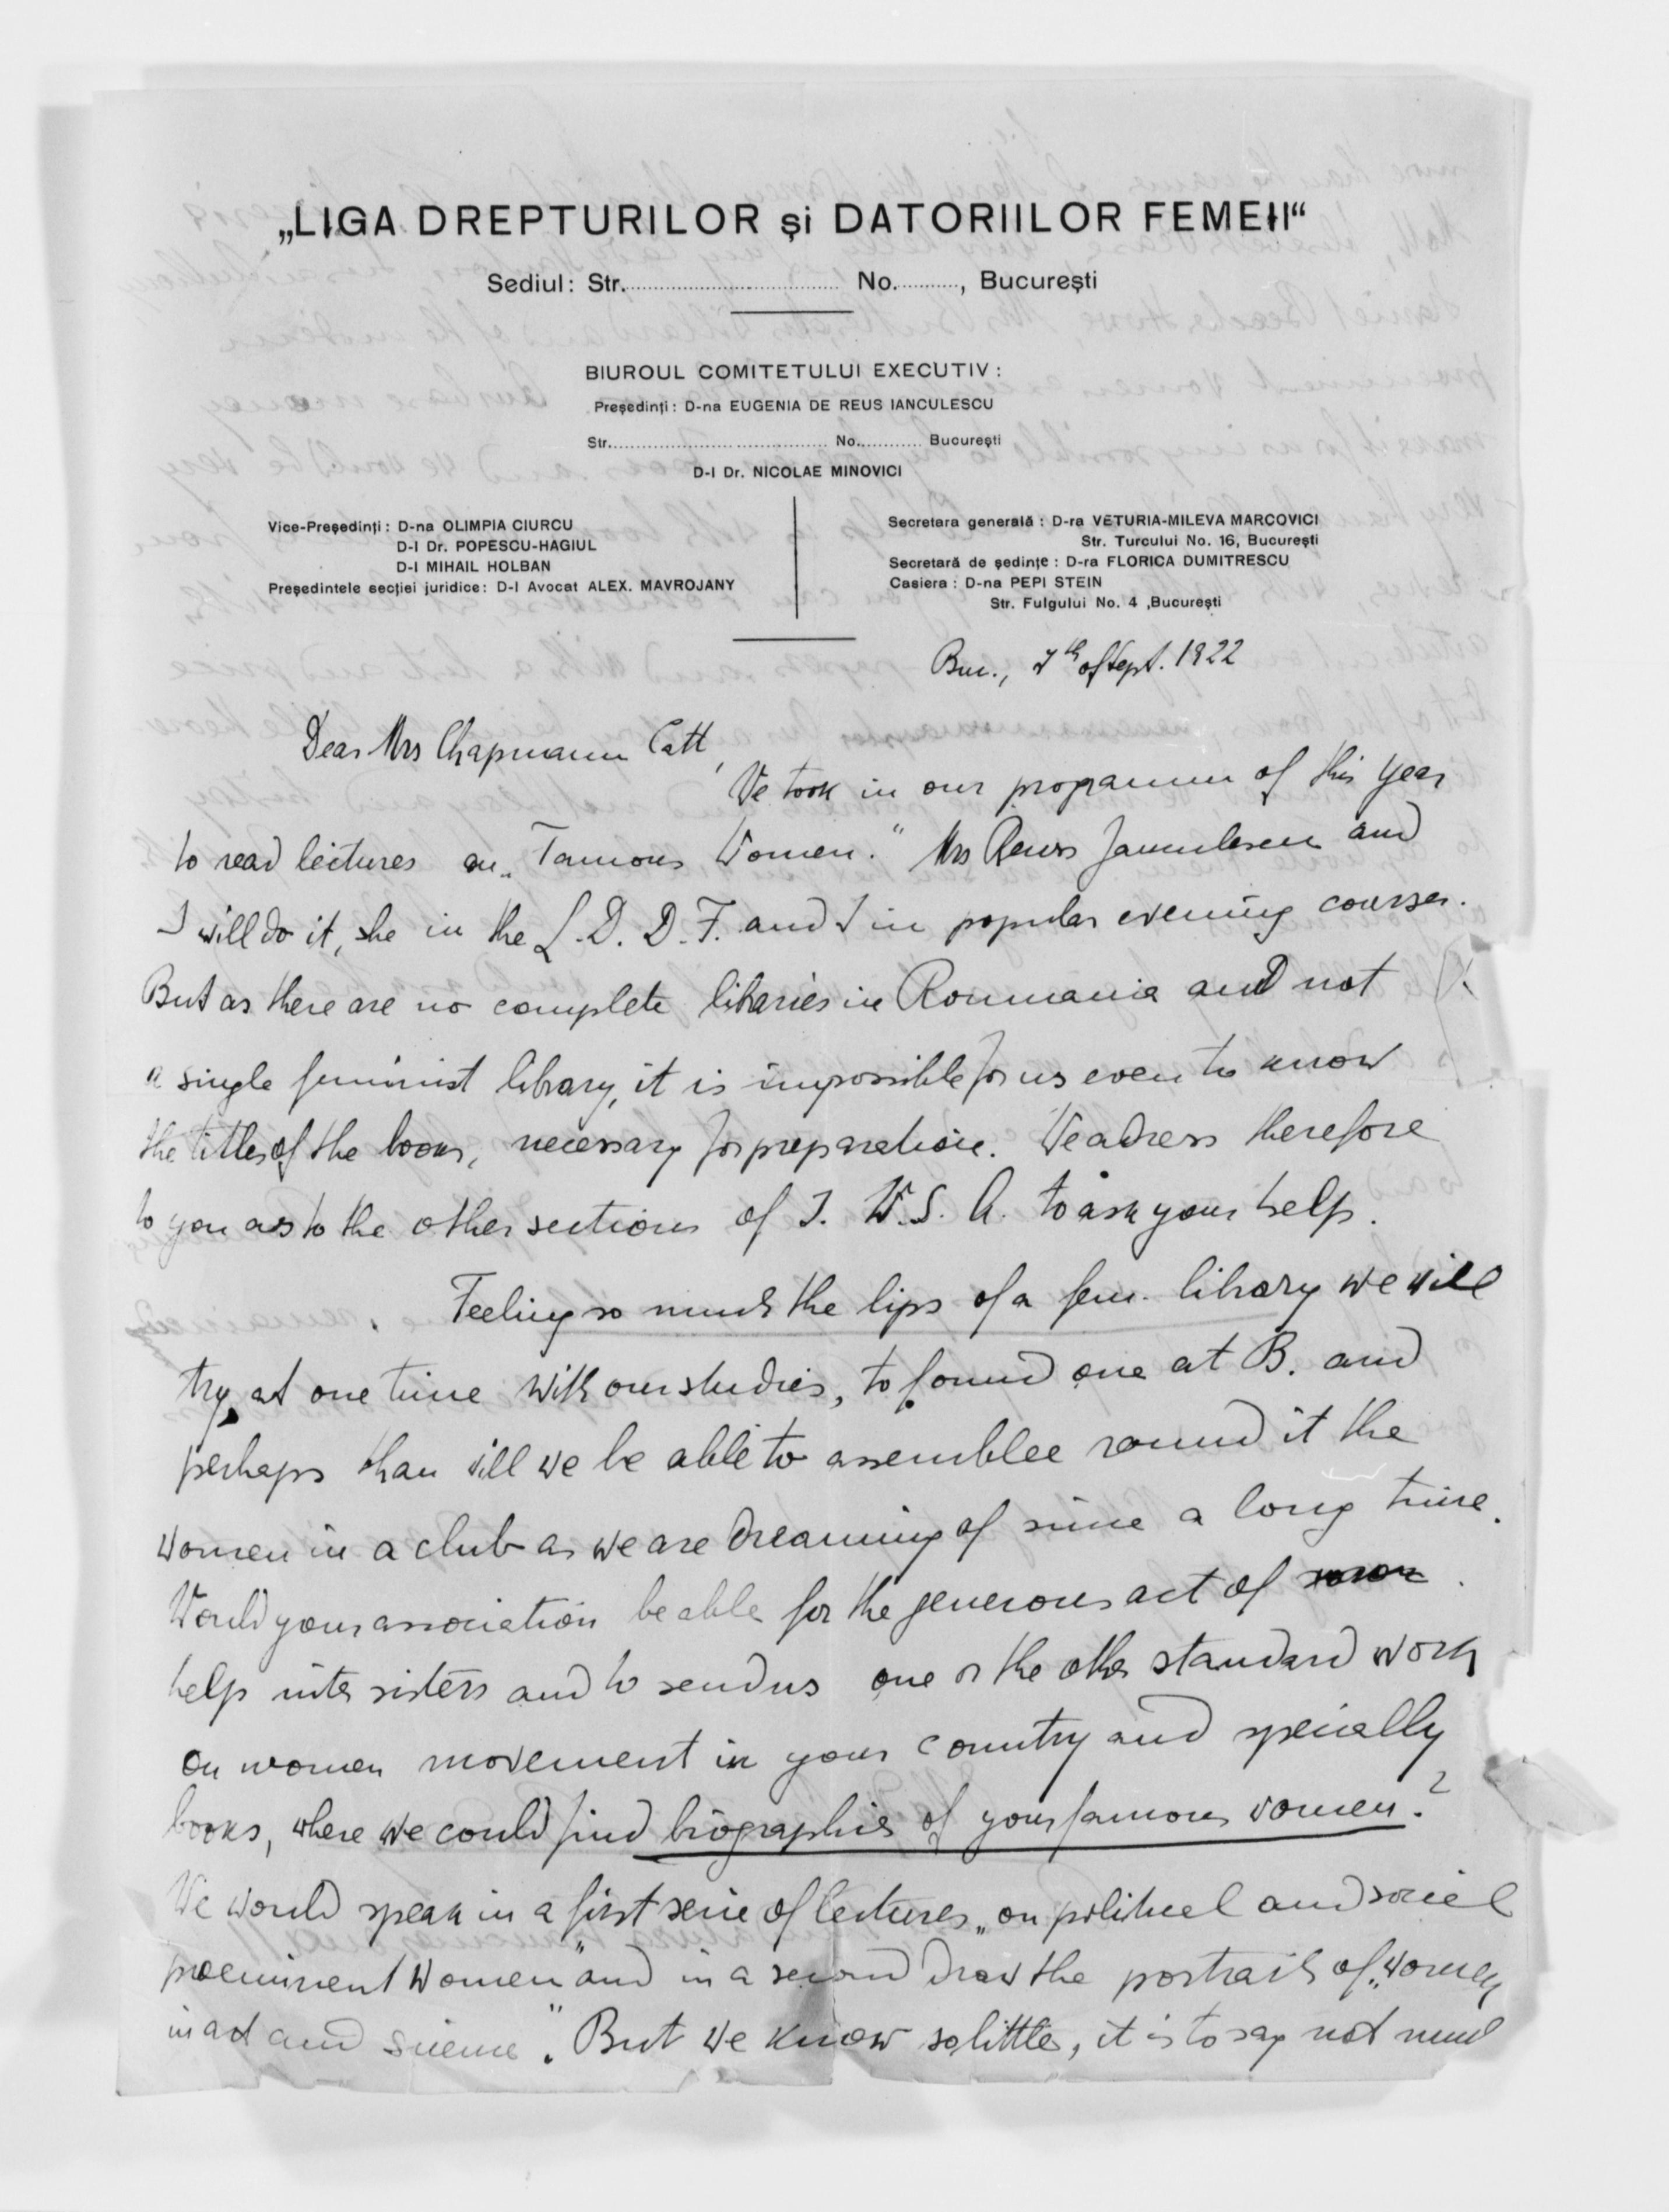 „LIGA DREPTURILOR și DATORIILOR FEMEII“
Sediul: Str. No. , București
BIUROUL COMITETULUI EXECUTIV:
Președinți: D-na EUGENIA DE REUS IANCULESCU
Str. No. București
D-l Dr. NICOLAE MINOVICI
Vice-Președinți: D-na OLIMPIA CIURCU
D-l Dr. POPESCU-HAGIUL
D-l MIHAIL HOLBAN
Președintele secției juridice: D-l Avocat ALEX. MAVROJANY
Secretara generală: D-ra VETURIA-MILEVA MARCOVICI
Str. Turcului No. 16, București
Secretară de ședințe: D-ra FLORICA DUMITRESCU
Casiera: D-na PEPI STEIN
Str. Fulgului No. 4 ,București
Buc., 7th of Sept. 1922
Dear Mrs Chapmann Catt,
We took in our programm of this year
to read lectures on „Famous Women.“ Mrs Reuss Janculescu and
I will do it, she in the L. D. D. F. and I in popular evening courses.
But as there are no complete libraries in Roumania and not
a single feminist library, it is impossible for us even to know
the titles of the books, necessary for preparation. We adress therefore
to you as to the other sections of I. W. S. A. to ask your help.
Feeling so much the lips of a fem. library we will
try, at one time with our studies, to found one at B. and
perhaps than will we be able to assemblee round it the
women in a club as we are dreaming of since a long time.
Would your association be able for the generous act of
help inter sisters and to send us one or the other standard work
on women movement in your country and specially
books, where we could find biographies of your famous women?
We would speak in a first serie of lectures „on political and social
proeminent women“ and in a second draw the portraits of „women
in art and science“. But we know so little, it is to say not much